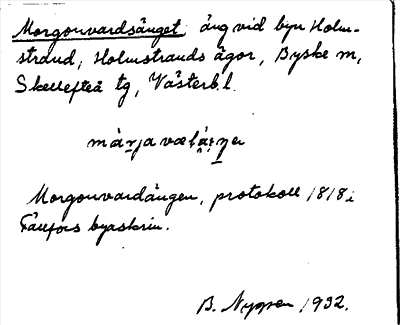 Morgonvardsänget, äng vid byn Holm-
strand, Holmstrands ägor, Byske m,
Skellefteå tg, Västerb. l.
Morgonvardängen, protokoll 1818 i
Fällfors byaskrin.
B. Nygren 1932.